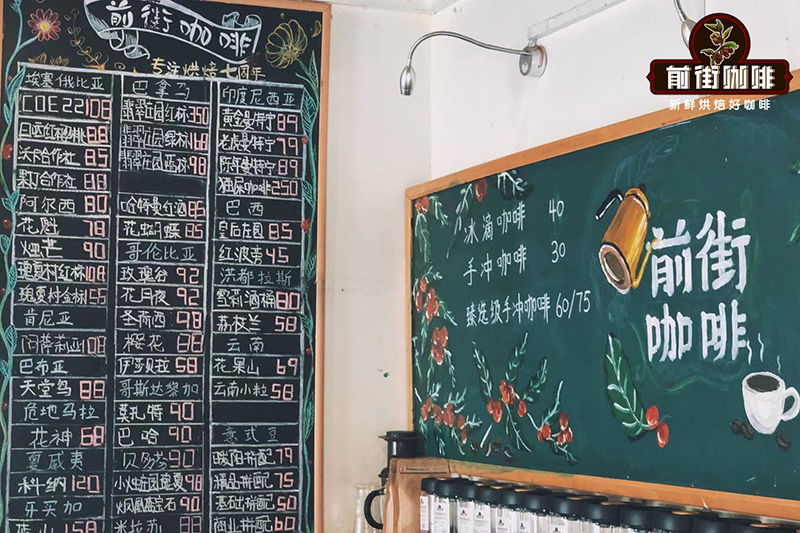 前街咖啡
专注烘焙七周年
埃塞俄比亚
COE22 108
88
沃卡合作社 85
果丁合作社
阿尔西 80
花魁 78
90
瑰夏村红标 108
瑰夏村金标 155
肯尼亚
阿萨莉亚 108
巴布亚
天堂鸟 88
危地马拉
花神 68
夏威夷
科纳 120
牙买加
蓝山 158
巴拿马
翡翠庄园红标 350
翡翠庄园绿标 168
翡翠庄园 98
哈特曼红酒 85
花蝴蝶 85
哥伦比亚
玫瑰谷 92
花月夜 92
圣荷西 98
樱花 88
伊莎贝拉 58
哥斯达黎加
莫扎特 90
巴哈 90
贝多芬 90
庄园瑰夏 98
宝石 90
米拉苏 88
印度尼西亚
黄金曼特宁 89
老虎曼特宁 79
陈年曼特宁 89
猫屎咖啡 250
巴西
皇后庄园 85
红波旁 45
洪都拉斯
雪莉酒桶 80
58
云南
花果山 69
云南小粒 58
意式豆
暖阳拼配 79
拼配 75
基础拼配 50
商业拼配 60
冰滴咖啡 40
手冲咖啡 30
臻选级手冲咖啡 60/75
前街
咖啡
前街咖啡
新鲜烘焙好咖啡